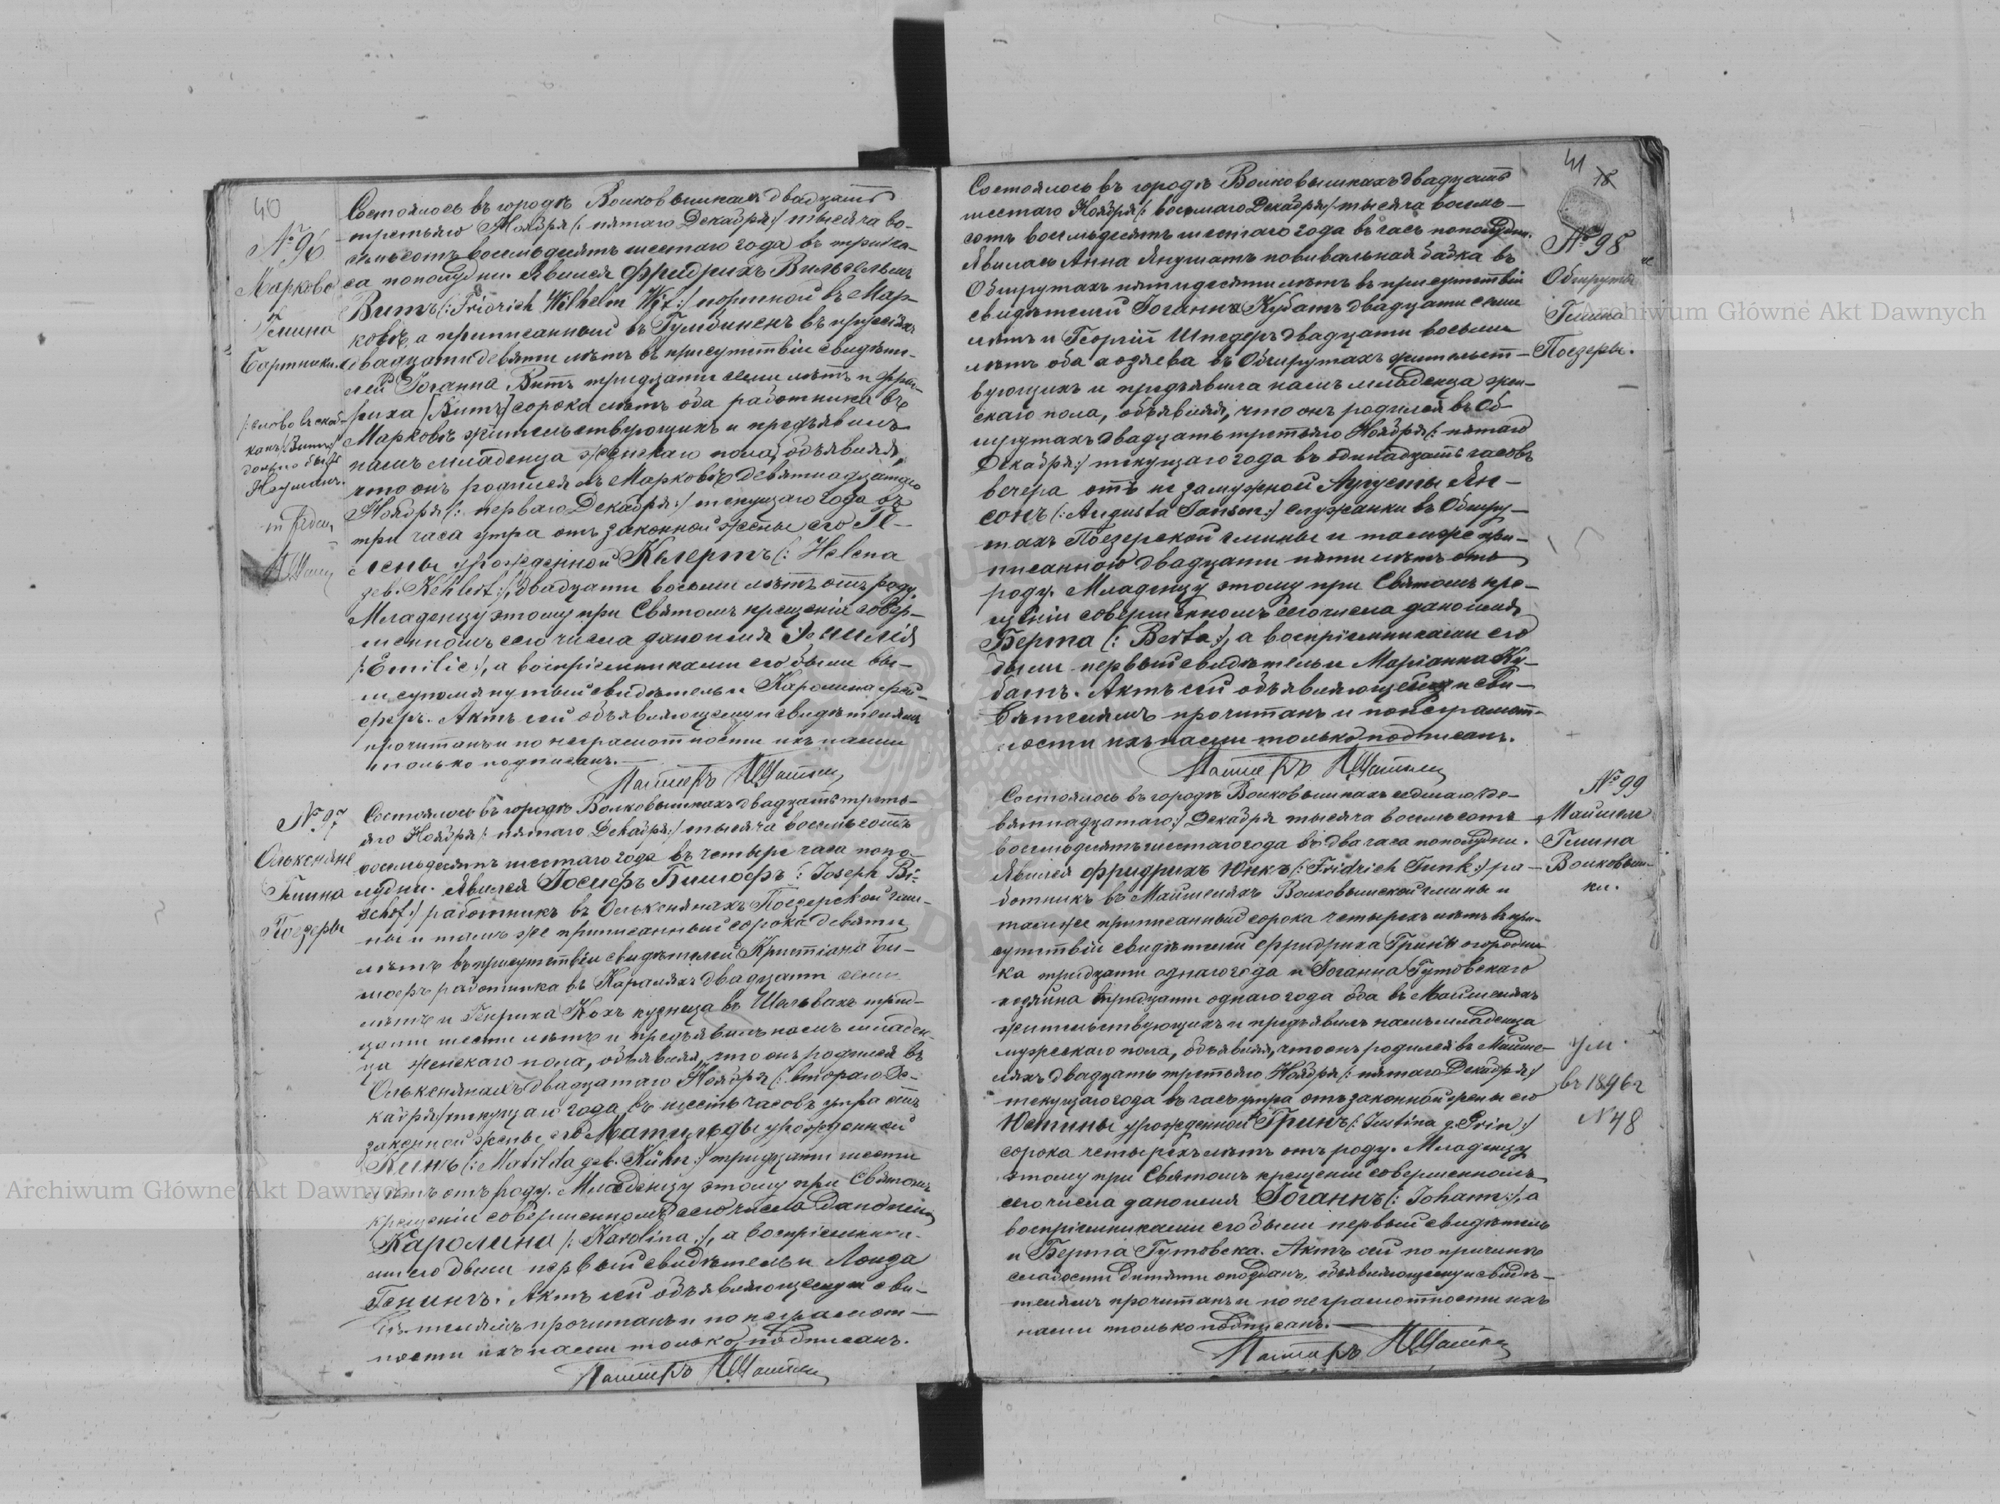 40
№ 96
Марково
Гмина
Бартники
Состоялось въ городѣ Волковышкахъ двадцать
третьяго Ноября /: пятаго Декабря :/ тысяча во-
семьсотъ восемьдесятъ шестаго года въ три ча-
са пополудни. Явился Фридрихъ Вильгельмъ
Витъ /: Fridrich Wilhelm Wit :/ въ Мар-
ковѣ, а приписанный въ Гумбиненъ въ Пруссіи
двадцати девяти лѣтъ въ присутствіи свидѣте-
лей Іоганна Витъ тридцати семи лѣтъ и Фрид-
риха [Витъ] сорока лѣтъ оба работника въ
Марковѣ жительствующихъ и предъявилъ
намъ младенца женскаго пола, объявляя,
что онъ родился въ Марковѣ девятнадцатаго
Ноября /: перваго Декабря :/ текущаго года въ
три часа утра отъ законной жены его Ге-
лены урожденной Кылертъ /: Helena
geb. Kehlert :/, двадцати восьми лѣтъ отъ роду.
Младенцу этому при Святомъ крещеніи совер-
шенномъ сего числа дано имя Эмилія
/: Emilie :/, а воспріемниками его были вы-
шеупомянутый свидѣтель и Каролина
Актъ сей объявляющему и свидѣтелямъ
прочитанъ и по неграмотности ихъ нами
только подписанъ.
Пасторъ
/: слово въ скоб-
кахъ: Витъ
должно быть
Нейманъ.
№ 97
Олькеняне
Гмина
Поезеры
Состоялось въ городѣ Волковышкахъ двадцать треть-
яго Ноября /: пятаго Декабря :/ тысяча восемьсотъ
восемьдесятъ шестаго года въ четыре часа попо-
лудни. Явился Іосифъ Бишофъ /: Joseph Bi-
schof :/ работникъ въ Олькенянахъ Поезерской гми-
ны и тамъ же приписанный сорока девяти
лѣтъ въ присутствіи свидѣтелей Христіана Би-
шофъ работника въ двадцати семи
лѣтъ и Генриха Кохъ кузнеца въ Шельвахъ трид-
цати шести лѣтъ и предъявилъ намъ младен-
ца женскаго пола, объявляя, что онъ родился въ
Олькенянахъ двадцатаго Ноября /: втораго Де-
кабря :/ текущаго года въ шесть часовъ утра отъ
законной жены его Матильды урожденной
Кинъ /: Matilda geb. Kühn :/ тридцати шести
лѣтъ отъ роду. Младенцу этому при Святомъ
крещеніи совершенномъ сего числа дано имя
Каролина /: Karolina :/, а воспріемника-
ми его были первый свидѣтель и Луиза
Генингъ. Актъ сей объявляющему и сви-
дѣтелямъ прочитанъ и по неграмот-
ности ихъ нами только подписанъ.
Пасторъ
41
№ 98
Обшруты
Гмина
Поезеры.
Состоялось въ городѣ Волковышкахъ двадцать
шестаго Ноября /: восьмаго Декабря :/ тысяча восемь-
сотъ восемьдесятъ шестаго года въ часъ пополудни.
Явилась Анна Янушатъ повивальная бабка въ
Обшрутахъ пятидесяти лѣтъ въ присутствіи
свидѣтелей Іоганна Кубатъ двадцати семи
лѣтъ и Георгій Шнедеръ двадцати восьми
лѣтъ оба хозяева въ Обшрутахъ жительст-
вующихъ и предъявила намъ младенца жен-
скаго пола, объявляя, что онъ родился въ Об-
шрутахъ двадцать третьяго Ноября /: пятаго
Декабря :/ текущаго года въ одинадцать часовъ
вечера отъ незамужной Аугусты Ян-
сонъ /: Augusta Janson :/ служанки въ Обшру-
тахъ Поезерской гмины и тамже при-
писанною двадцати пяти лѣтъ отъ
роду. Младенцу этому при Святомъ кре-
щеніи совершенномъ сего числа дано имя
Берта /: Berta :/, а воспріемниками его
были первый свидѣтель и Маріанна Ку-
батъ. Актъ сей объявляющей и сви-
дѣтелямъ прочитанъ и по неграмот-
ности ихъ нами только подписанъ.
Пасторъ
№ 99
Майшеле
Гмина
Волковыш-
ки.
Состоялось въ городѣ Волковышкахъ седьмаго /: де-
вятнадцатаго :/ Декабря тысяча восемьсотъ
восемьдесятъ шестаго года въ два часа пополудни.
Явился Фридрихъ Юнкъ /: Fridrich Junk :/ ра-
ботникъ въ Майшеляхъ Волковышской гмины и
тамже приписанный сорока четырехъ лѣтъ въ при-
сутствіи свидѣтелей Фридриха Гринъ огородни-
ка тридцати однаго года и Іоганна Гутовскаго
хозяина тридцати однаго года оба въ Майшеляхъ
жительствующихъ и предъявилъ намъ младенца
мужескаго пола, объявляя, что онъ родился въ Майше-
ляхъ двадцать третьяго Ноября /: пятаго Декабря :/
текущаго года въ часъ утра отъ законной жены его
Юстины урожденной Гринъ /: Justina g. Grin :/
сорока четырехъ лѣтъ отъ роду. Младенцу
этому при Святомъ крещеніи совершенномъ
сего числа дано имя Іоганнъ /: Johann :/, а
воспріемниками его были первый свидѣтель
и Берта Гутовска. Актъ сей по причинѣ
слабости дитяти опозданъ, объявляющему и свидѣ-
телямъ прочитанъ и по неграмотности ихъ
нами только подписанъ.
Пасторъ
ум.
въ 1896 г
N 48
Archiwum Główne Akt Dawnych
Archiwum Główne Akt Dawnych